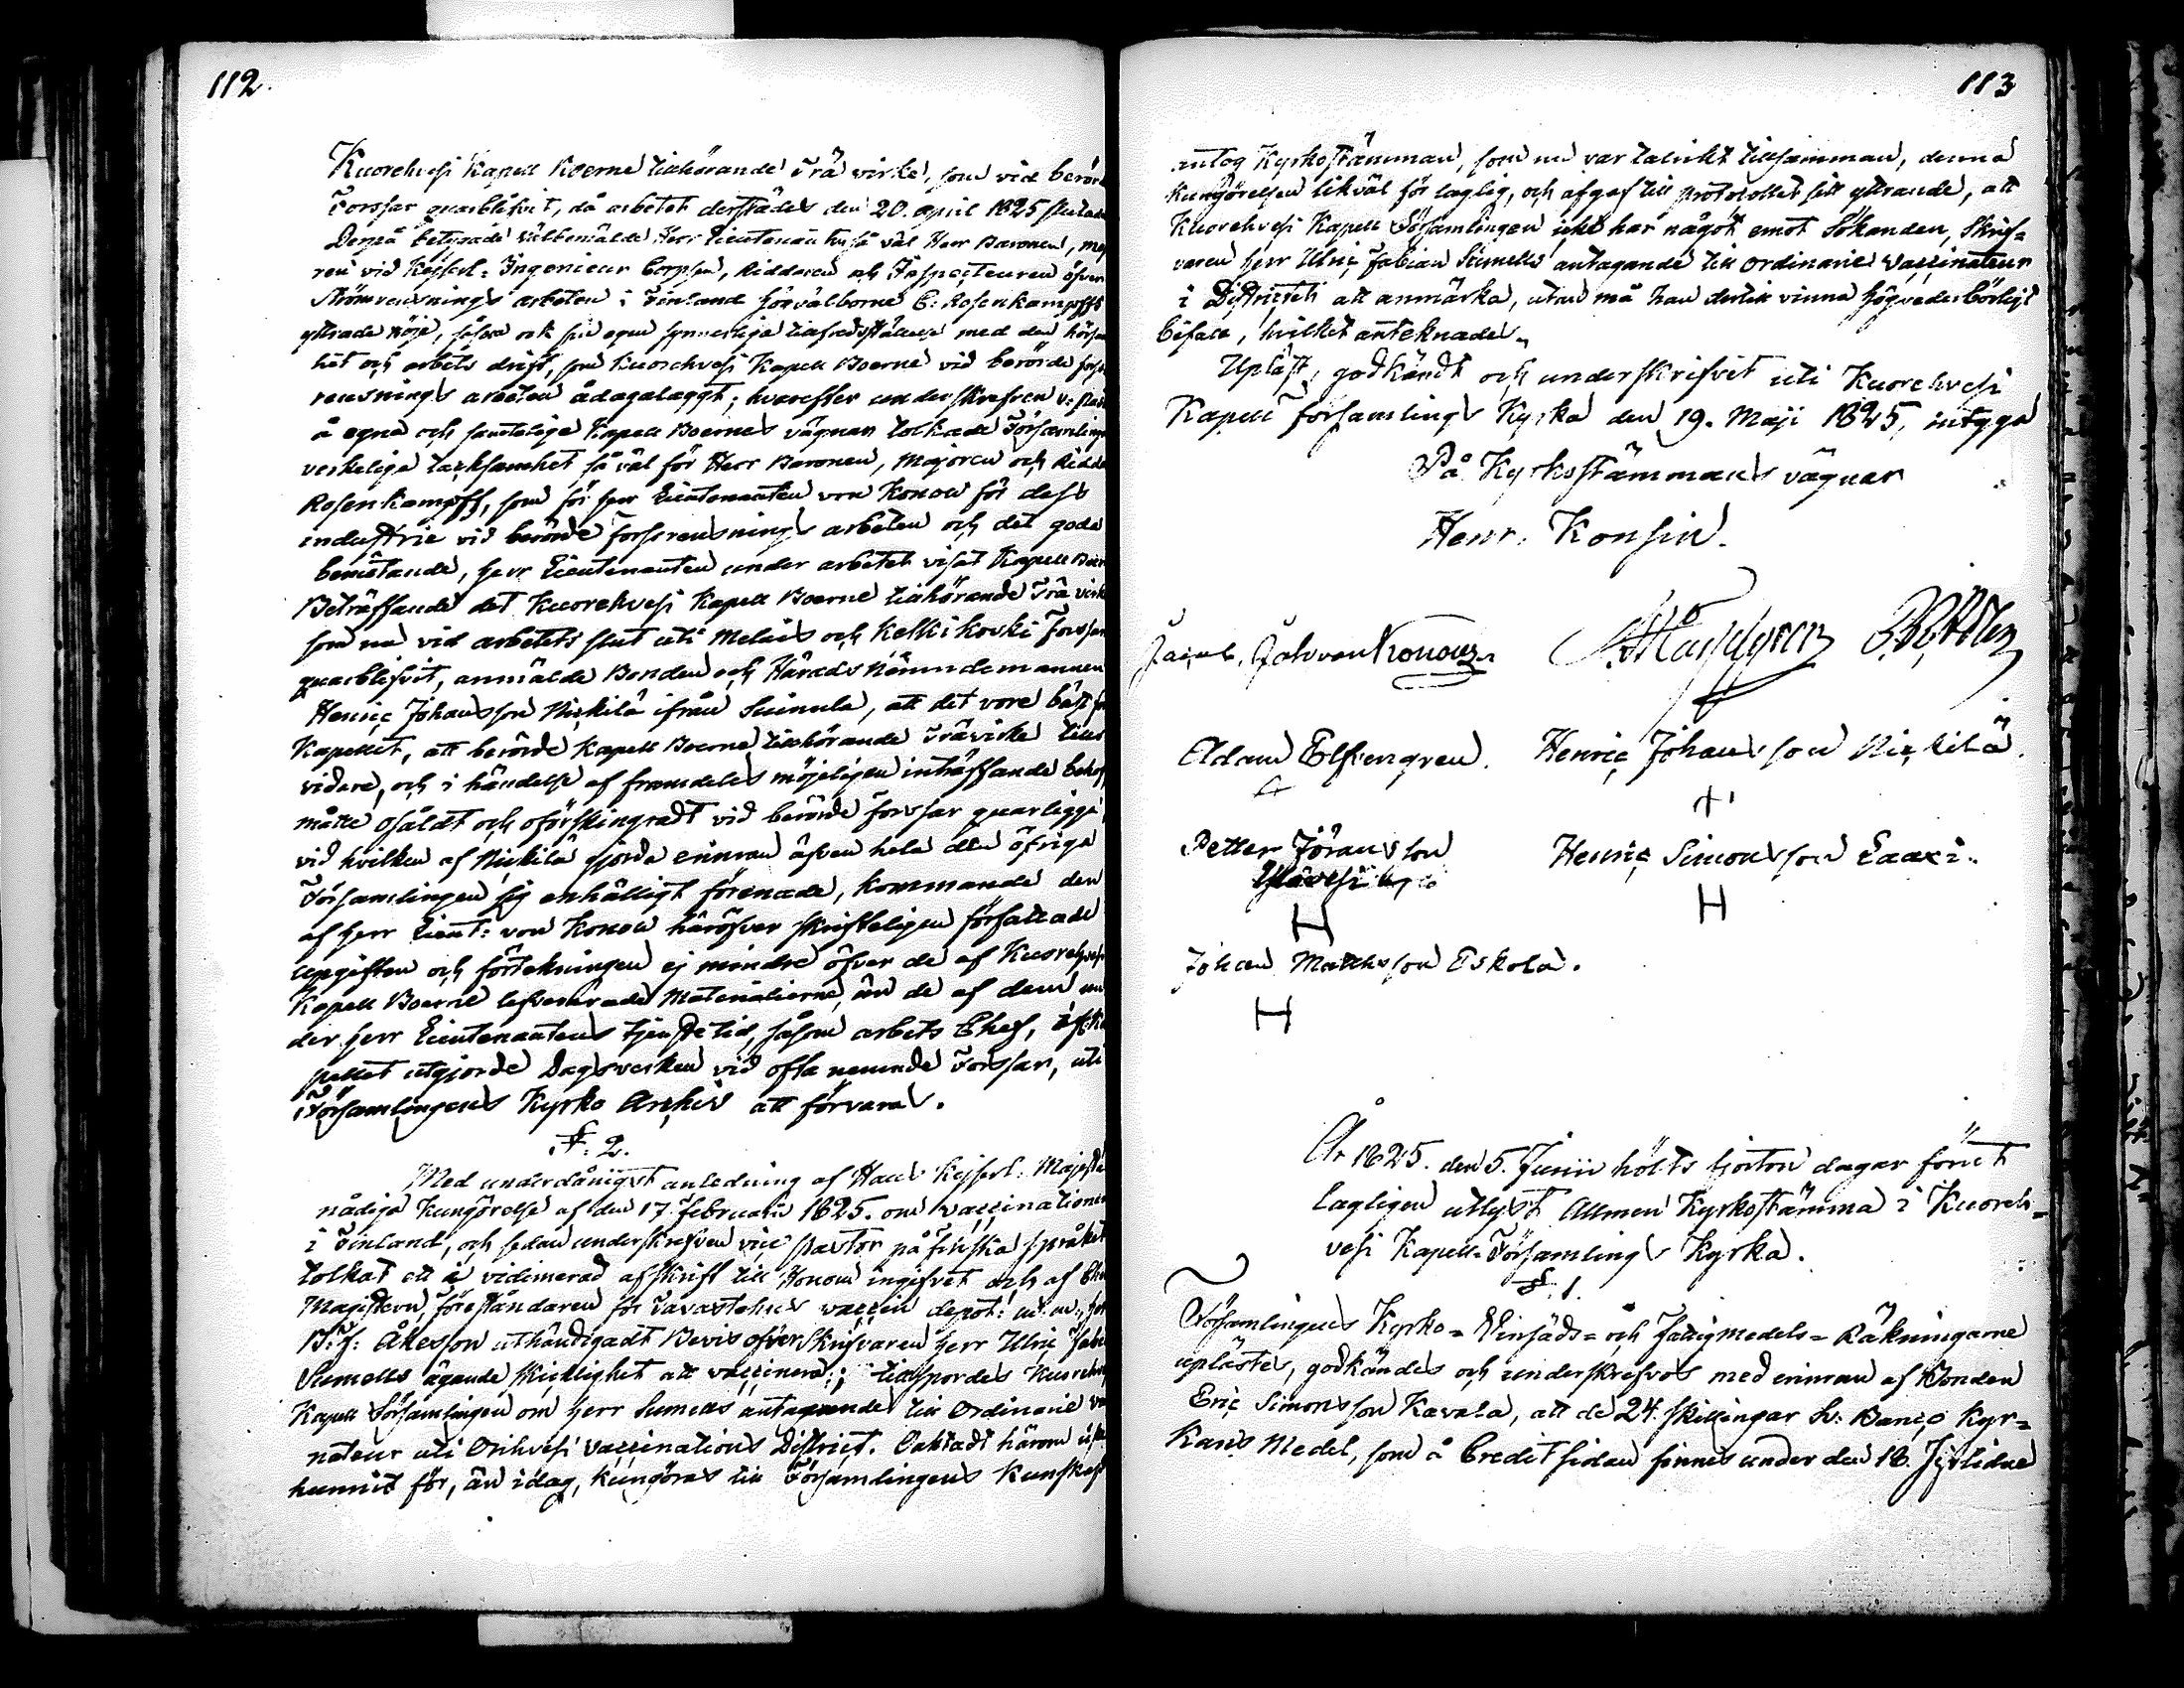 112.
Kuorehvesi Kapell Boerne tillhörande Trä virke, som vid berörd
Forssar quarblifvit, då arbetet derstädes den 20. April 1825 slutades
Derpå betygade välbemälde Herr Lieutenant så väl Herr Baronen, maj
ren vid Kejserl: Ingenieur Corpsen, Riddaren och Inspecteuren öfver
Strömrensnings arbeten i Finland Högvälborne C: Rosenkampffs
yttrade nöje, såsom ock sin egen synnerliga tillfredsställelse med den hörsam
het och arbets drift, som Kuorehvesi Kapell Boerne vid berörde forss
rensnings arbeten ådagalaggt; hvarefter underskrefven v: past
å egna och samtelige Kapell Boernes vägnar tolkade Församlings
verkeliga tacksamhet så väl för Herr Baronen, Majoren och Ridd
Rosenkampff, som för Herr Lieutenanten von Konow för dess
industrie vid berörde forssrensnings arbeten och det goda
bemötande, Herr Lieutenanten under arbetet visat Kapell Boer
Beträffande det Kuorehvesi Kapell Boerne tillhörande Trä virke
som nu vid arbetets slut uti Melais och Kelkikoski Forssar
quarblifvit, anmälde Bonden och Härads Nämndemannen
Henric Johansson Nickilä ifrån Suinula, att det vore bäst för
Kapellet, att berörde Kapell Boerne tillhörande Trävirke tills
vidare, och i händelse af framdeles möjeligen inträffande behof
måtte osåldt och oförskingradt vid berörde forssar quarligga,
vid hvilken af Nickilä gjorda erinran äfven hela den öfriga
Församlingen sig enhälligt förenade, kommande den
af Herr Lieut: von Konow häröfver skrifteligen författade
uppgiften och förtekningen ej mindre öfver de af Kuorehvesi
Kapell Boerne lefvererade Materialierne, än de af dem un
der Herr Lieutenantens tjenstetid, såsom arbets Chef, af Ka
pellet utgjorde Dagsverken vid ofta nemnde Forssar, uti
Församlingens Kyrko Archiv att förvaras.
§. 2.
Med underdånigst anledning af Hans Kejserl: Majestäts
nådiga Kungörelse af den 17. Februarii 1825. om vaccinationen
i Finland, och sedan underskrefven vice pastor på finska språket
tolkat ett i vidimerad afskrift till Honom ingifvet och af
Magistern, Föreståndaren för Tavastehus vaccin depot: m. m., Herr
B: J: Åkesson uthändigadt Bevis öfver Skrifvaren Herr Ulric Fabian
Sumells ägande skicklighet att vaccinera; tillspordes Kuorehvesi
Kapell Församlingen om Herr Sumells antagande till Ordinarie vacci
nateur uti Orihvesi vaccinations District. Oaktadt härom icke
hunnit för, än i dag, kungöras till Församlingens kunskap
113
antog Kyrkostämman, som nu var talrikt tillsamman, denna
Kungörelsen likväl för laglig, och afgaf till protocollet sitt yttrande, att
Kuorehvesi Kapell Församlingen icke har något emot Sökanden, Skrif=
varen Herr Ulric Fabian Sumells antagande till ordinarie Vaccinateur
i Districtet att anmärka, utan må han dertill vinna högvederbörligt
bifall, hvilket anteknades.
Upläst, godkändt och underskrifvit uti Kuorehvesi
Kapell församlings Kyrka den 19. Maji 1825, intyga
På Kyrkostämmans vägnar
Henr. Konsin.
Jacob Joh von Konow
Adam Elfvengren. Henric Johansson Nickilä.
Petter Jöransson Henric Simonsson Laaxi.
H H
Johan Mathsson Eskola.
H
År 1825. den 5. Junii hölts fjorton dagar förut
lagligen utlyst Allmen Kyrkostämma i Kuoreh=
vesi Kapell-Församlings Kyrka.
§. 1.
Församlingens Kyrko= Vinsäds= och Fattigmedels= Räkningarne
uplästes, godkändes och underskrefvos med erinran af Bonden
Eric Simonsson Kavala, att de 24. skillingar Sv: Banco Kyr=
kans Medel, som å Credit sidan finnes under den 18.